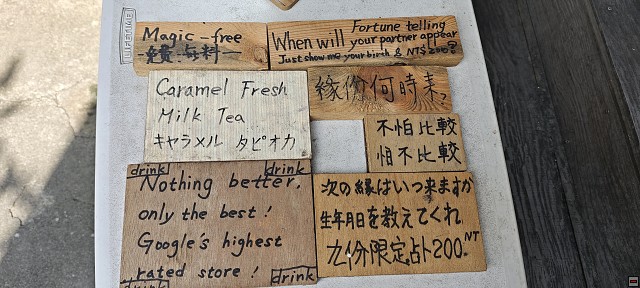 LIFETIME
Magic-free
免費:無料
Fortune telling
When will your partner appear
Just show me your birth & NT$200?
Caramel Fresh
Milk Tea
キャラメル タピオカ
緣份何時来?
不怕比較
怕不比較
drink drink
Nothing better,
only the best!
Google's highest
rated store!
drink drink
次の縁はいつ来ますか
生年月日を教えてくれ
九份限定占卜200.NT